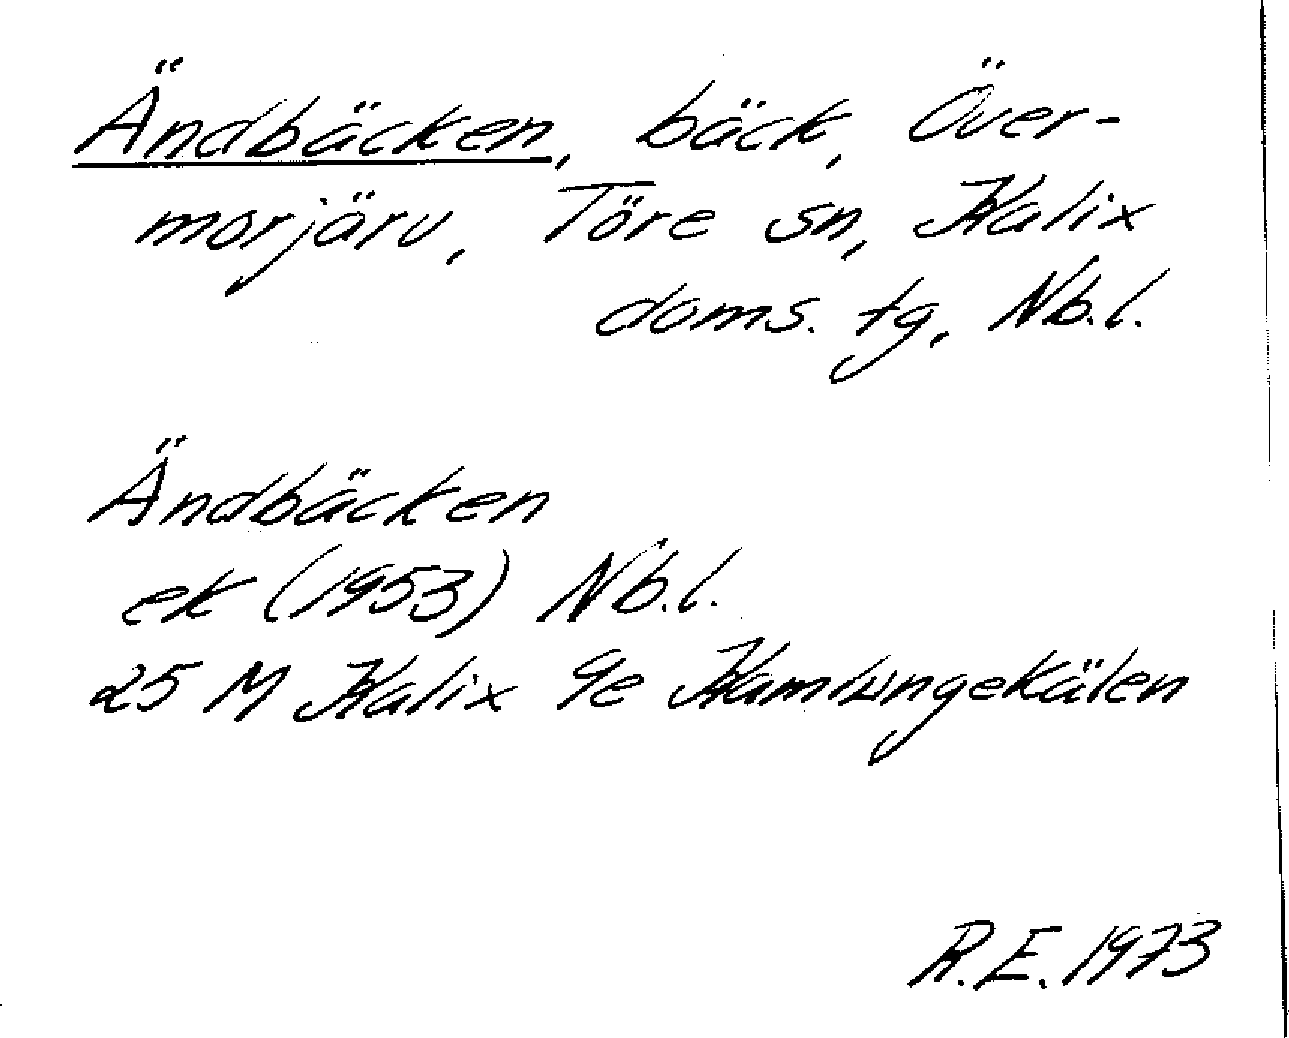 Ändbäcken, bäck, Över-
morjärv, Töre sn, Kalix
doms. tg, Nb.l.
Ändbäcken
ek (1953) Nb.l.
25 M Kalix 9e Kamlungekälen
R.E. 1973